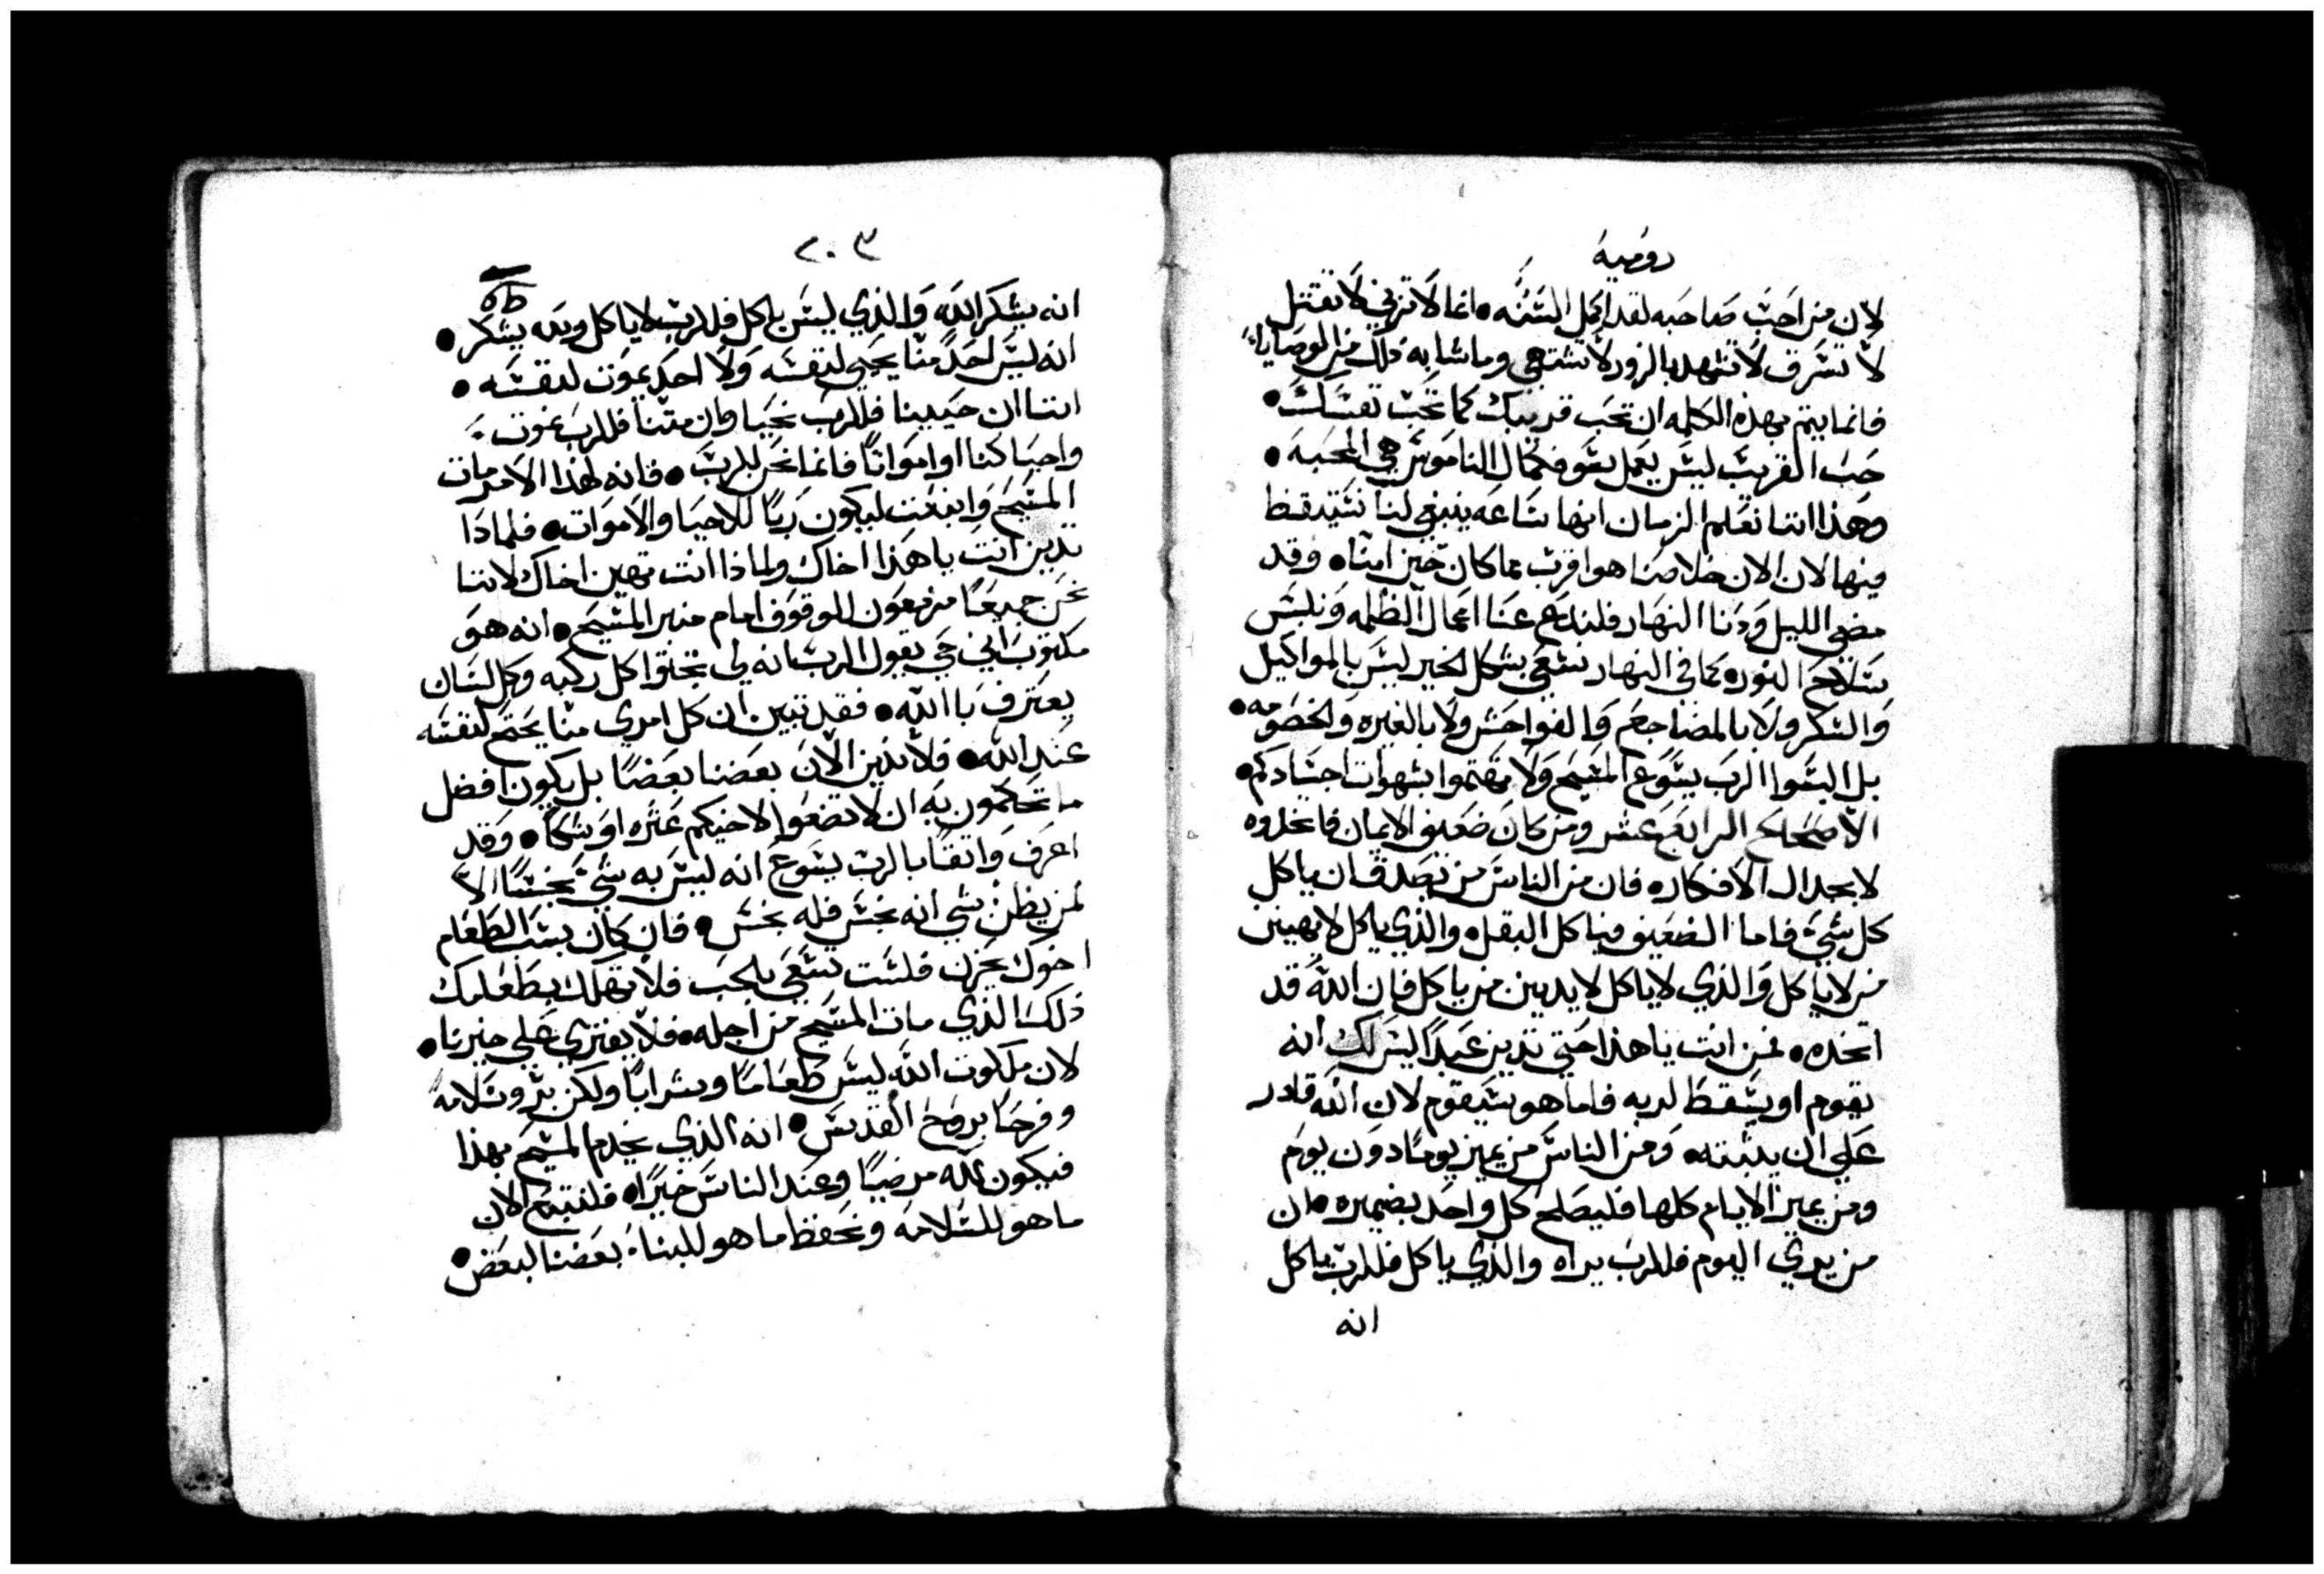 رومية
لان من احب صاحبه لقد اكمل السنه • انما لا تزني لا تقتل
لا تسرق لا تشهد بالزور لا تشتهي وما شابه ذلك من الوصايا
فانما يتم بهذه الكلمه ان تحب قريبك كما تحب نفسك •
حب القريب ليس يعمل سو فكمال الناموس هي المحبه •
وهذا اننا نعلم الزمان انها ساعه ينبغي لنا نستيقظ
منها لان الان خلاصنا هو اقرب مما كان حين امنا • وقد
مضي الليل ودنا النهار فلندع عنا اعمال الظلمه ونلبس
سلاح النور • كما في النهار نسعي بشكل الخير ليس بالمواكيل
والسكر ولا بالمضاجع والفواحش ولا بالغيره والخصومه •
بل البسوا الرب يسوع المسيح ولا تهتموا بشهوات اجسادكم •
الاصحاح الرابع عشر ومن كان ضعيف الايمان فاتخذوه
لا بجدال الافكار • فان من الناس من يصدق ان ياكل
كل شي فاما الضعيف فياكل البقل • والذي ياكل لا يهين
من لا ياكل والذي لا ياكل لا يدين من ياكل فان الله قد
اتخذه • فمن انت يا هذا حتي تدين عبدا ليس لك انه
يقوم او يسقط لربه فاما هو سيقوم لان الله قادر
علي ان يثبته • ومن الناس من يميز يوما دون يوم
ومن يميز الايام كلها فليصلح كل واحد بضميره • ان
من يري اليوم فللرب يراه والذي ياكل فللرب ياكل
انه
٢٠٣
انه يشكر الله والذي ليس ياكل فللرب لا ياكل ويشكر •
انه ليس احد منا يحيي لنفسه ولا احد يموت لنفسه •
اننا ان حيينا فللرب نحيا وان متنا فللرب نموت
واحيا كنا او امواتا فانما نحن للرب • فانه لهذا الامر مات
المسيح وانبعث ليكون ربا للاحيا والاموات • فلماذا
تدين انت يا هذا اخاك ولماذا انت تهين اخاك لاننا
نحن جميعا مزمعون الوقوف امام منبر المسيح • انه هو
مكتوب اني حي يقول الرب انه لي تجثوا كل ركبه وكل لسان
يعترف با الله • فقد تبين ان كل امري منا يحتج لنفسه
عند الله • فلا ندين الان بعضنا بعضا بل يكون افضل
ما تحكمون به ان لا تضعوا لاخيكم عثره او شكا • وقد
اعرف واثقا بالرب يسوع انه ليس به شي نجسا الا
لمن يظن شي انه نجس فله نجس • فان كان بسبب الطعام
اخوك يحزن فلست تسعي بالحب فلا تهلك بطعامك
ذلك الذي مات المسيح من اجله • فلا يفتري علي خيرنا •
لان ملكوت الله ليس طعاما وشرابا ولكن بر وسلامه
وفرحا بروح القدس • انه الذي يخدم المسيح بهذا
فيكون لله مرضيا وعند الناس خيرا • فلنتبع الان
ما هو للسلامه ونحفظ ما هو للبنا بعضنا لبعض •